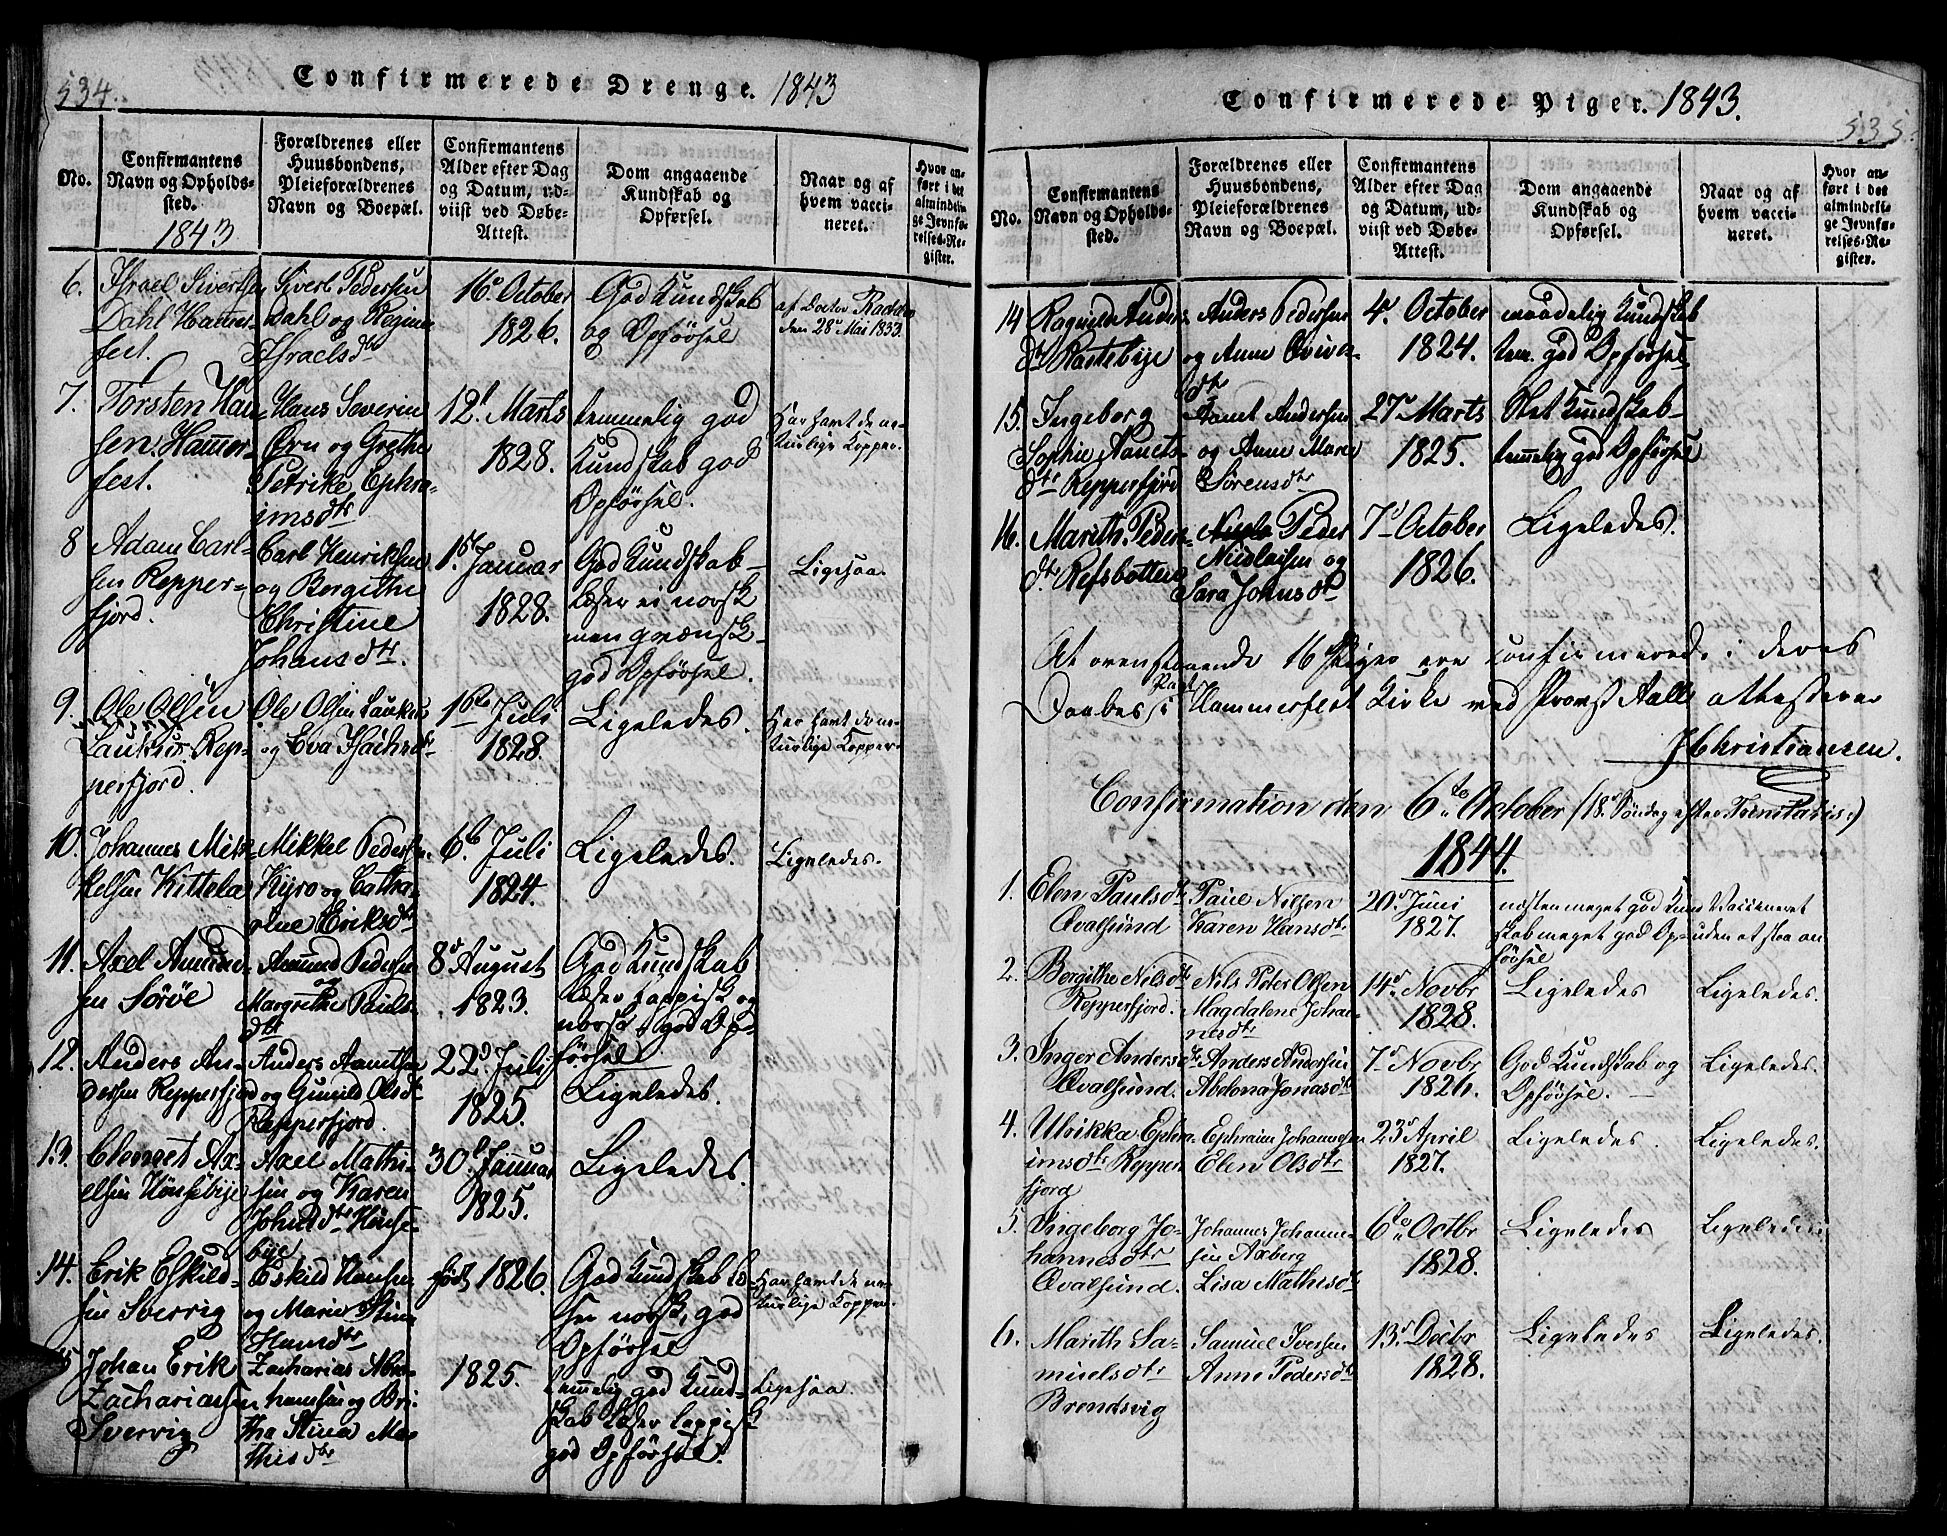 534.
Confirmerede Drenge. 1843
No.
Confirmantens
Navn og Opholds-
sted.
1843
Forældrenes eller
Huusbondens,
Pleieforældrenes
Navn og Boepæl.
Confirmantens
Alder efter Dag
og Datum, ud-
viist ved Døbe-
Attest.
Dom angaaende
Kundskab og
Opførsel.
Naar og af
hvem vacci-
neret.
Hvor an-
ført i det
almindeli-
ge Jevnfø-
relses-Re-
gister.
6. Israel Sivertsen
Dahl Hamer-
fest.
Sivert Pedersen
Dahl og Regine
Israelsdtr
16. October
1826.
God Kundskab
og Opførsel
af Doctor
den 28. Mai 1833.
7. Torsten Han-
sen. Hamer-
fest.
Hans Severin
Ørn og Grethe
Petrike Ephra-
imsdtr
12. Marts
1828.
temmelig god
Kundskab god
Opførsel.
Har havt de na-
turlige Kopper.
8 Adam Carl-
sen Repper-
fjord.
Carl Henriksen
og Borgithe
Christine
Johansdtr.
15. Januar
1828.
God Kundskab-
læser ei norsk
men qvænsk-
god Opførsel.
Ligesaa.
9. Ole Olsen
Laukus. Rep-
perfjord.
Ole Olsen Laukus
og Eva Isachsdtr
16de Juli
1828.
Ligeledes.
Har havt de na-
turlige Kopper.
10. Johannes Mik-
kelsen Kittela
Mikkel Pedersen
Kyro og Catha-
rine Eriksdtr
6. Juli
1824.
Ligeledes.
Ligeledes.
11. Axel Amund-
sen Sørøe
Amund Pedersen
og
Margrethe Pauls-
dtr
8. August
1823.
God Kundskab
læser lappisk og
norsk, god Op-
førsel.
12. Anders An-
dersen Repperfjord
Anders Aamtsen
og Gunild Olsdtr
Repperfjord.
22. Juli
1825.
Ligeledes.
13. Clemet Ax-
elsen Hønsebye
Axel Mathi-
sen og Karen
Johnsdtr Hønse-
bye
30. Januar
1825.
Ligeledes.
14. Erik Eskild-
sen Svervig
Eskild Hansen
og Maria Stina
Hansdtr
født 1826.
God Kundskab læ-
ser norsk, god
Opførsel
Har havt de na-
turlige Kopper.
15 Johan Erik
Zachariassen
Svervig
Zacharias Abra-
hamsen og Bri-
tha Stina Ma-
thisdtr
1825.
temmelig god Kund-
skab læser lappisk
god Opførsel.
Ligesaa
Confirmerede Piger. 1843.
535.
No.
Confirmantens
Navn og Opholds-
sted.
Forældrenes eller
Huusbondens,
Pleieforældrenes
Navn og Boepæl.
Confirmantens
Alder efter Dag
og Datum, ud-
viist ved Døbe-
Attest.
Dom angaaende
Kundskab og
Opførsel.
Naar og af
hvem vacci-
neret.
Hvor an-
ført i det
almindeli-
ge Jevnfø-
relses-Re-
gister.
14 Ragnild Anders-
dtr
Anders Pedersen
og Anne
dtr
4. October
1824.
maadelig Kundskab
tem. god Opførsel.
15. Ingeborg
Sophie Aamts-
dtr Repperfjord
Aamt Andersen
og Anne Marie
Sørensdtr
27. Marts
1825.
Slet Kundskab-
temmelig god Opførsel
16. Marith Peders-
dtr Refsbotten
Peder
Nicolaisen og
Sara Johnsdtr
7. October
1826.
Ligeledes.
At ovenstaaende 16 Piger ere confirmerede i deres
Daabes Pagt i Hammerfest Kirke ved Provst Aall attesterer
J Christiansen.
Confirmation den 6te October (18. Søndag efter Trinitatis:)
1844.
1. Elen Paulsdtr
Qvalsund
Paul Nilsen
Karen Hansdtr
20. Juni
1827.
næsten meget god Kund-
skab meget god Op-
førsel
Vaccineret
uden at slaa an
2. Borgithe Nilsdtr
Repperfjord.
Nils Peter Olsen
Magdalene Johan-
nesdtr
14. Novbr
1828.
Ligeledes
Ligeledes.
3. Inger Andersdtr
Qvalsund.
Anders Andersen
Abelona Jonasdtr
7. Novbr
1826.
God Kundskab og
Opførsel.
Ligeledes.
4. Ulrikka Ephra-
imsdtr Repper-
fjord
Ephraim Johannesen
Elen Olsdtr
23. April
1827.
Ligeledes.
Ligeledes.
5. Ingeborg Jo-
hannesdtr
Qvalsund.
Johannes Johanne-
sen Axberg
Lisa Mathisdtr
6. Octbr
1828.
Ligeledes
Ligeledes
6. Marith Sa-
muelsdtr
Brendsvig
Samuel Iversen
Anne Pedersdtr
13. Decbr
1828.
Ligeledes
Ligeledes.